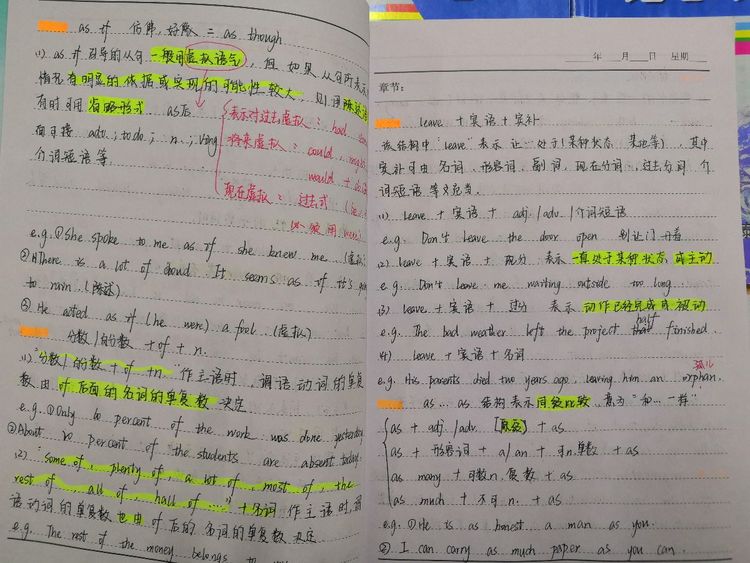 as if 仿佛,好像 = as though
(1) as if 引导的从句一般用虚拟语气,但如果从句所表示
情况有明显的依据或实现的可能性较大,则
有时可用省略形式 as后
可接 adv; to do; n; ving
介词短语等
表示对过去虚拟: had
将来虚拟: could, might
would +
现在虚拟: 过去式
一般用 were
e.g. ①She spoke to me as if she knew me (虚拟)
②There is a lot of cloud. It seems as if it's
to rain. (陈述)
③ He acted as if (he were) a fool (虚拟)
分数/的数 + of + n.
(1) "分数/的数 + of + n. 作主语时,谓语动词的单复
数由 of 后面的名词的单复数决定
e.g. ①Only percent of the work was done yesterday
②About percent of the students are absent today.
(2) "some of, plenty of, a lot of, most of, the
rest of, all of, half of ..." + 名词 作主语时,谓
语动词的单复数也由 of 后的名词的单复数决定
e.g. The rest of the money belongs to
年 月 日 星期
章节:
leave + 宾语 + 宾补
该结构中 "leave" 表示 让...处于(某种状态、某地等),其中
宾补可由名词、形容词、副词、现在分词、过去分词、介
词短语等充当。
(1) leave + 宾语 + adj./adv./介词短语
e.g. Don't leave the door open 别让门开着
(2) leave + 宾语 + 现分 表示一直处于某种状态 或主动
e.g. Don't leave me waiting outside too long.
(3) leave + 宾语 + 过分 表示 动作已经完成或被动
e.g. The bad weather left the project half finished.
(4) leave + 宾语 + 名词
孤儿
e.g. His parents died two years ago, leaving him an orphan.
as ... as 结构表示同级比较,意为"和...一样"
as + adj./adv. [原级] + as
as + 形容词 + a/an + 可n.单数 + as
as many + 可数n.复数 + as
as much + 不可n. + as
e.g. ①He is as honest a man as you.
② I can carry as much paper as you can.